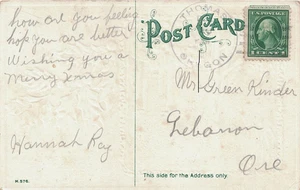 how are you feeling
hope you are better
Wishing you a
Merry Xmas
Hannah Ray
M. 575.
POST CARD
THOMAS
U.S. POSTAGE
1 CENT 1
Mr Green Kinder
Lebanon
Ore
This side for the Address only.